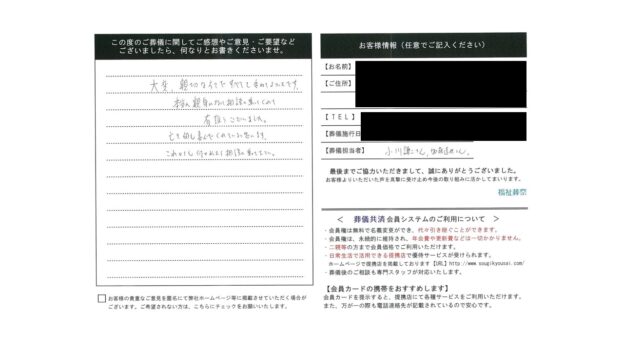 この度のご葬儀に関してご感想やご意見・ご要望など
ございましたら、何なりとお書きくださいませ。
大変、親切な
有難うございました。
これからも
お客様の貴重なご意見を匿名にて弊社ホームページ等に掲載させていただく場合が
ございます。ご希望されない方は、こちらにチェックをお願いします。
お客様情報（任意でご記入ください）
【お名前】
【ご住所】
【ＴＥＬ】
【葬儀施行日
【葬儀担当者】 小川
最後までご協力いただきまして、誠にありがとうございました。
お客様よりいただいた声を真摯に受け止め今後の取り組みに活かしてまいります。
福祉葬祭
＜ 葬儀共済会員システムのご利用について ＞
・会員権は無料で名義変更ができ、代々引き継ぐことができます。
・会員権は、永続的に維持され、年会費や更新費などは一切かかりません。
・二親等の方まで会員価格でご利用いただけます。
・日常生活で活用できる提携店で優待サービスが受けられます。
ホームページで提携店を掲載しております【URL】http://www.sougikyousai.com/
・葬儀後のご相談も専門スタッフが対応いたします。
【会員カードの携帯をおすすめします】
会員カードを提示すると、提携店にて各種サービスをご利用いただけます。
また、万が一の際も電話連絡先が記載されているので安心です。